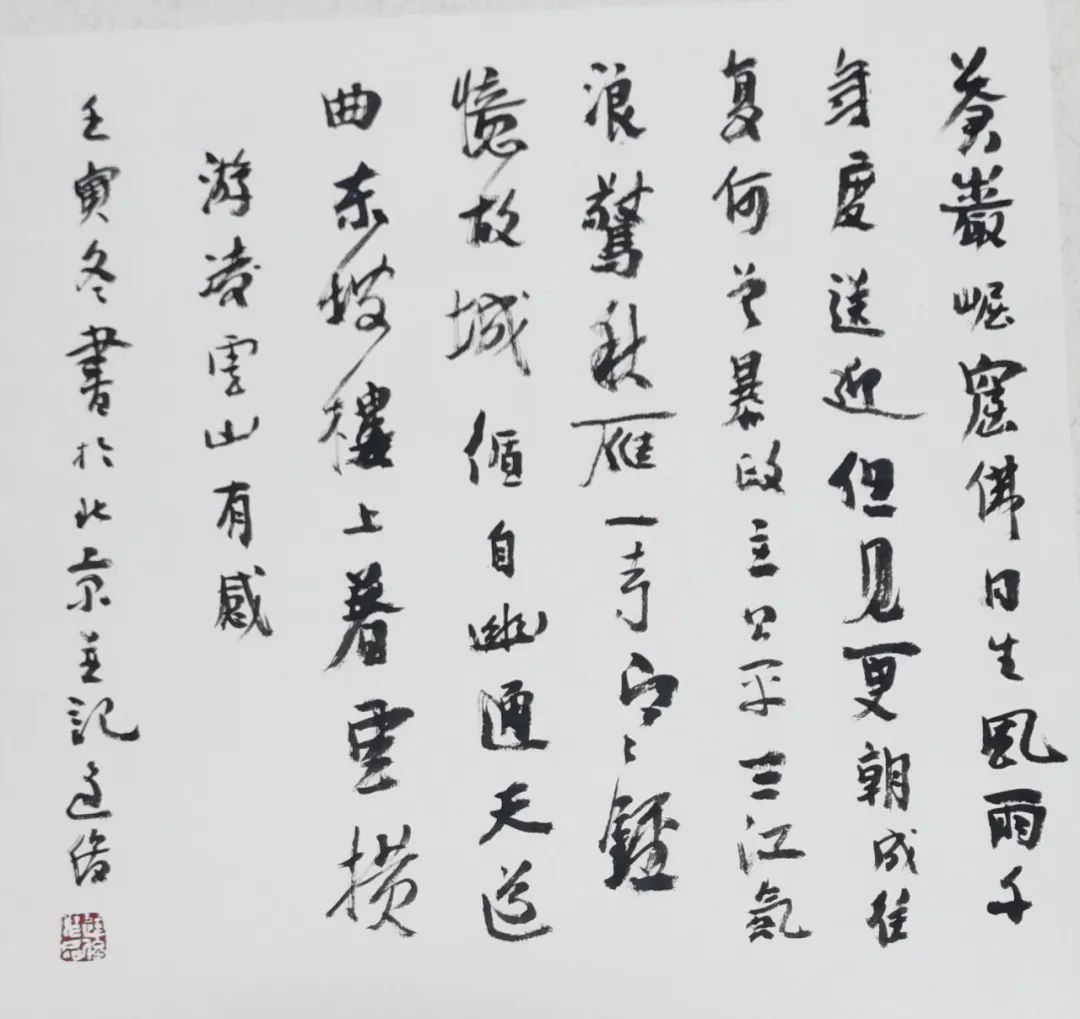 叢崛窟佛日生風雨千
年度送迎但見更朝成往
复何曾暴政主公平三江氣
浪驚秋雁一寺鐘
憶故城循自幽通天道
曲東坡樓上暮雲横
游凌雲山有感
壬寅冬書於北京並記